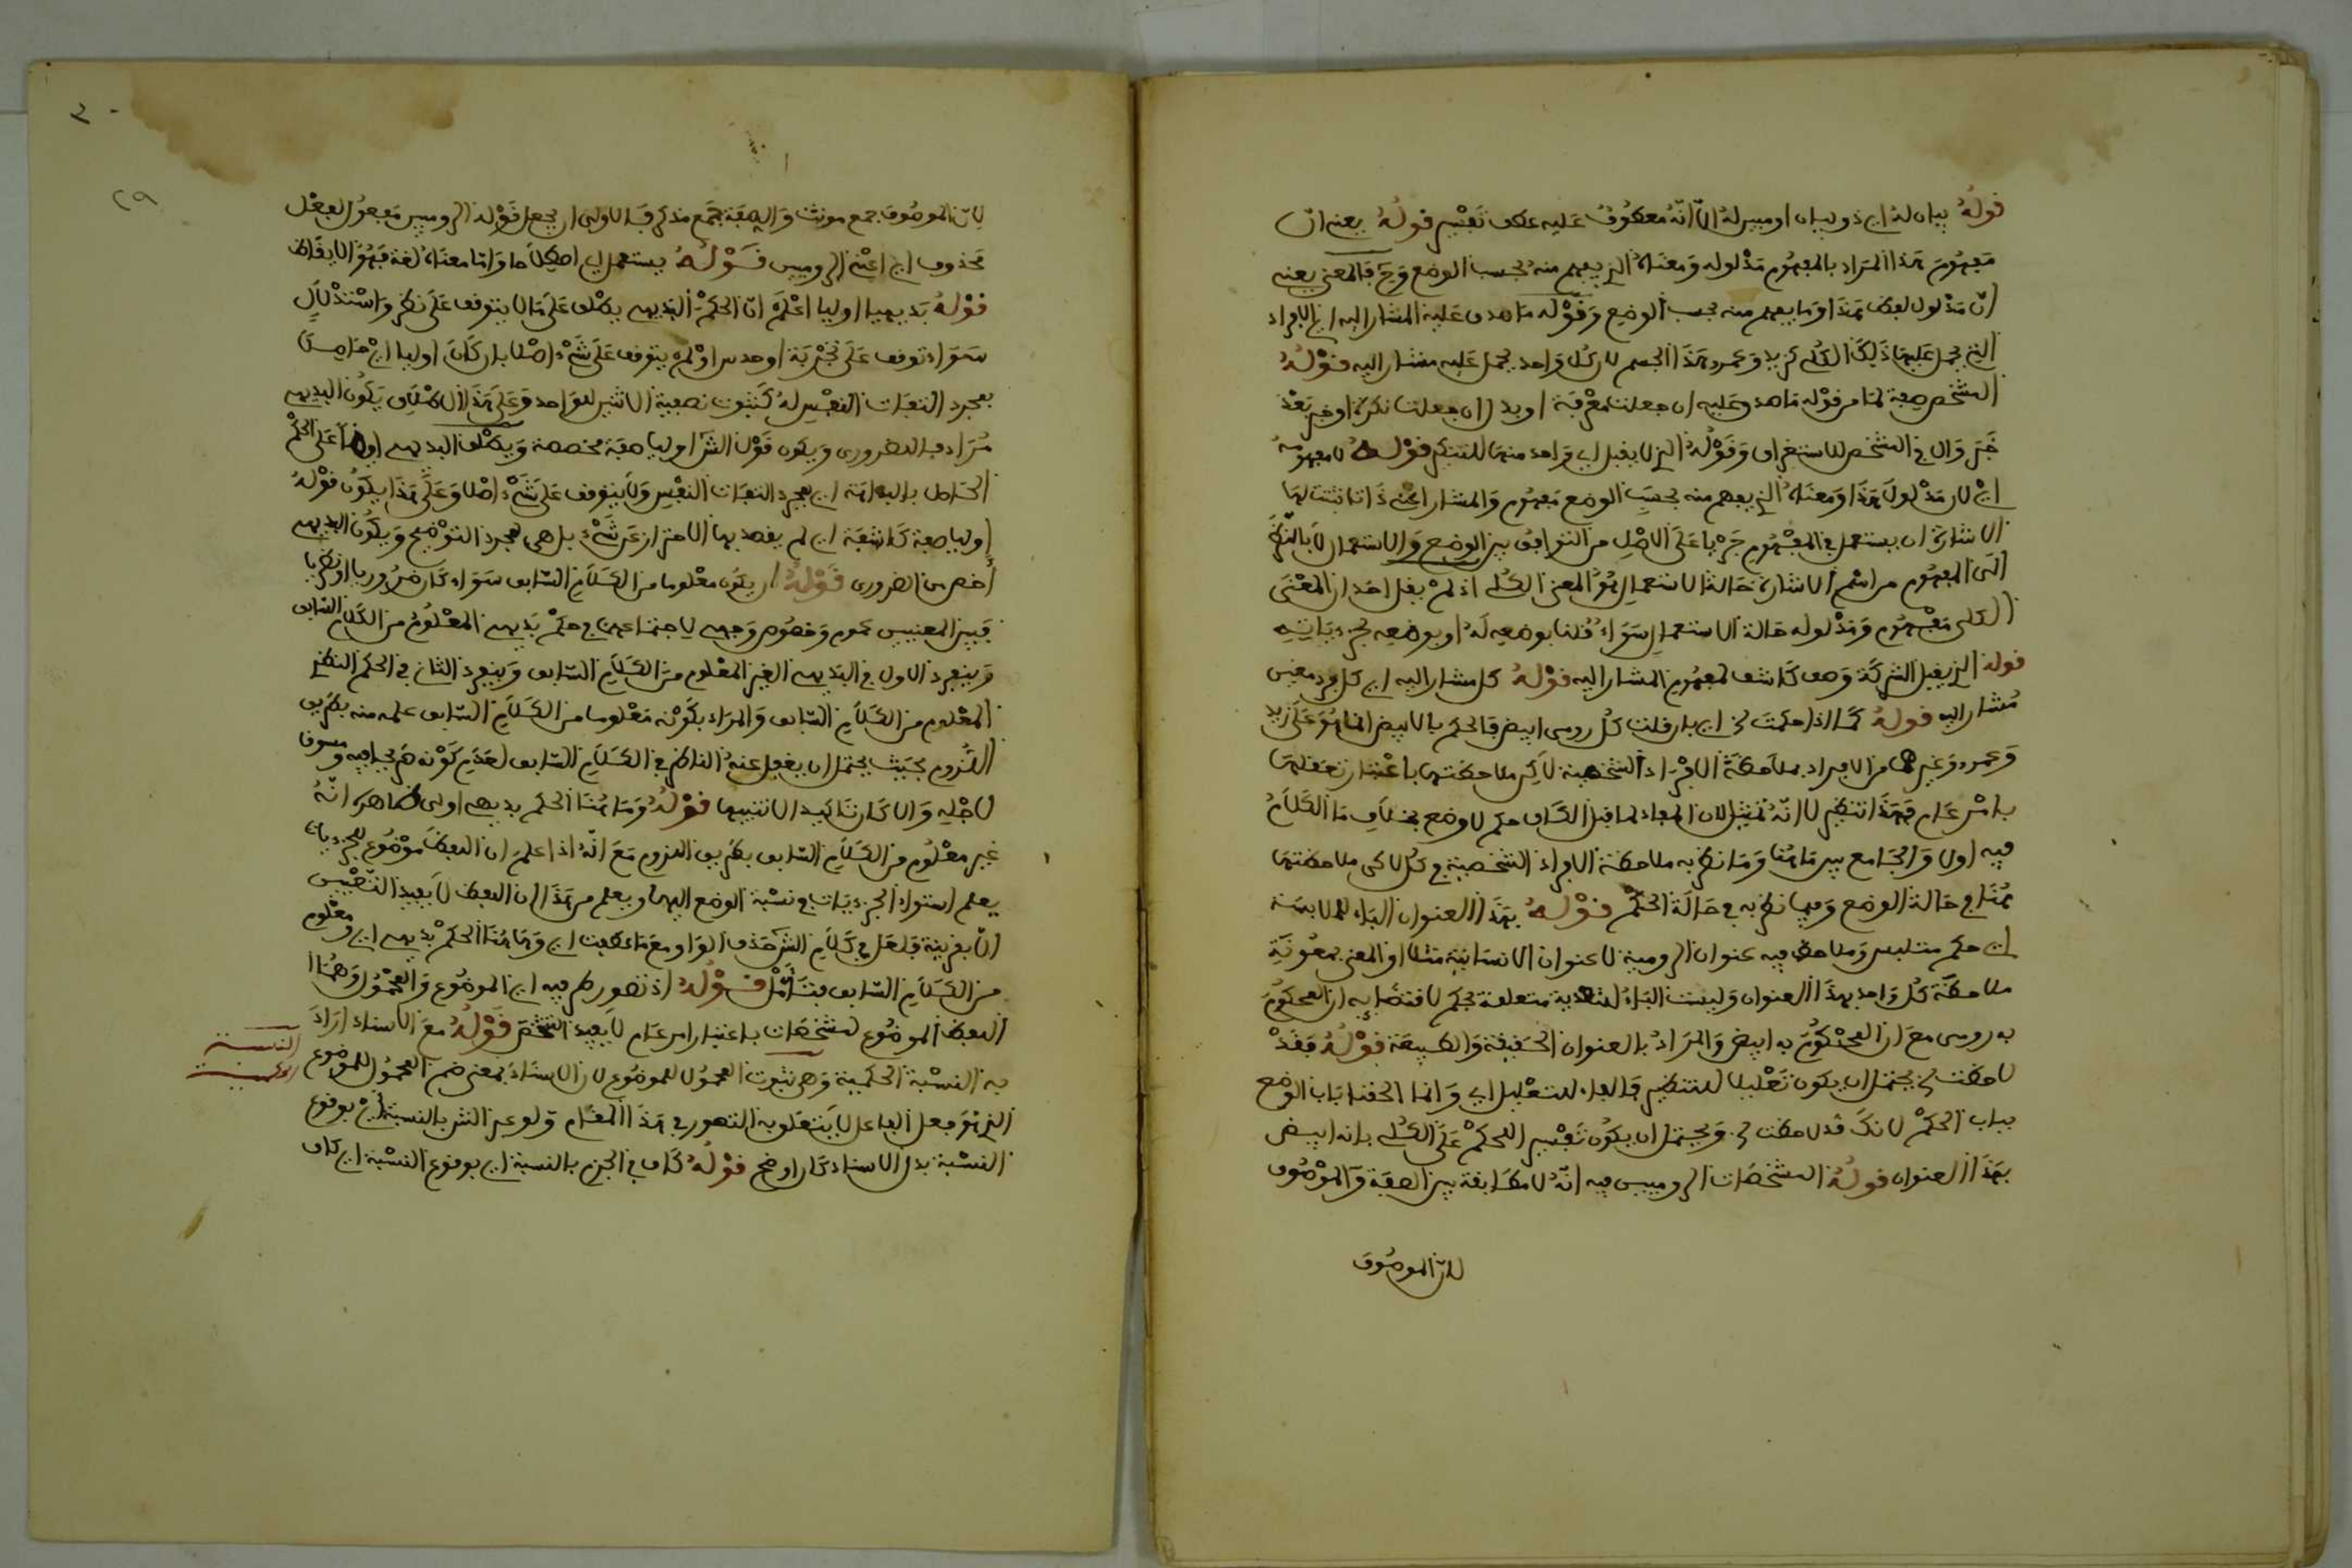 قوله بيان له اي ذو بيان او مبين له الا انه معطوف عليه عطف تفسير قوله يعني ان
مفهوم هذا المراد بالمفهوم مدلوله ومعناه الذي يفهم منه بحسب الوضع وح فالمعنى يعني
ان مدلول لفظ هذا وما يفهم منه بحسب الوضع وقوله ما صدق عليه المشار اليه اي الافراد
التي يحمل عليها ذلك الكلي كزيد وعمرو هذا الجسم لان كل واحد يحمل عليه مشار اليه قوله
المشخص صفة لما من قوله ما صدق عليه ان جعلت معرفة او بدل ان جعلت نكرة او خبر بعد
خبر وال في المشخص للاستغراق وقوله الذي لا يقبل اي واحد منها للتنكير قوله لا مفهومه
اي لان مدلول هذا ومعناه الذي يفهم منه بحسب الوضع مفهوم والمشار اي ذاتا ثبتت لها
الاشارة ان يستعمل في المفهوم جريا على الاصل من التوافق بين الوضع والاستعمال لا بالنظر
الى المفهوم من اسم الاشارة حالة الاستعمال هو المعنى الكلي اذ لم يقل احد ان المعنى
الكلي مفهوم ومدلوله حالة الاستعمال سواء قلنا بوضعه له او بوضعه لجزئياته
قوله الذي يقبل الشركة وصف كاشف لمفهوم المشار اليه قوله كل مشار اليه اي كل فرد معين
مشار اليه قوله كما اذا حكمت الخ اي بان قلت كل رومي ابيض فالحكم بالابيض انما هو على زيد
وعمرو وغيرهما من الافراد بملاحظة الافراد الشخصية لا كن ملاحظتها باعتبار تعقلها
بامر عام فهذا تنظير لا انه تمثيل لان المفاد لما قبل الكاف حكم لا وضع بخلاف ما الكلام
فيه اولا والجامع بين ما هنا وما نظر به ملاحظة الافراد الشخصية في كل لاكن ملاحظتها
هنا في حالة الوضع وفيما نظر به في حالة الحكم قوله بهذا العنوان الباء للملابسة
اي حكم متلبس وملاحظ فيه عنوان الرومية لا عنوان الانسانية مثلا او المعنى بمعونة
ملاحظة كل واحد بهذا العنوان وليست الباء للتعدية متعلقة بحكم لاقتضائه ان المحكوم
به رومي مع ان المحكوم به ابيض والمراد بالعنوان الحقيقة والطبيعة قوله فقد
لاحظت الخ يحتمل ان يكون تعليلا للتنظير فالفاء للتعليل اي وانما الحقنا باب الوضع
بباب الحكم لانك قد لاحظت الخ ويحتمل ان يكون تفسير اللحكم على الكلي بانه ابيض
بهذا العنوان قوله المشخصات الروميين فيه انه لا مطابقة بين الصفة والموصوف
لان الموصوف
٣٠
٢٩
لان الموصوف جمع مونث والصفة جمع مذكر فالاولى ان يجعل قوله الروميين مفعول لفعل
محذوف اي اعني الروميين قوله يستعمل اي اصطلاحا واما معناه لغة فهو الايقاظ
قوله بديهيا اوليا اعلم ان الحكم البديهي يطلق على ما لا يتوقف على نظر واستدلال
سواء توقف على تجربة او حدس او لم يتوقف على شيء اصلا بان كان اوليا اي حاصلا
بمجرد التفات النفس له كثبوت نصفية الاثنين للواحد وعلى هذا الاطلاق يكون البديهي
مرادفا للضروري ويكون قول الش اوليا صفة مخصصة ويطلق البديهي ايضا على الحكم
الحاصل بالبداهة اي بمجرد التفات النفس ولا يتوقف على شيء اصلا وعلى هذا يكون قوله
اوليا صفة كاشفة اي لم يقصد بها الاحتراز عن شيء بل هي لمجرد التوضيح ويكون البديهي
اخص من الضروري قوله ان يكون معلوما من الكلام السابق سواء كان ضروريا او نظريا
فبين المعنيين عموم وخصوص وجهي لاجتماعهما في حكم بديهي المعلوم من الكلام السابق
وينفرد الاول في البديهي الغير المعلوم من الكلام السابق وينفرد الثاني في الحكم النظري
المعلوم من الكلام السابق والمراد بكونه معلوما من الكلام السابق علمه منه بطريق
اللزوم بحيث يحتمل ان يغفل عنه الناظر في الكلام السابق لعدم كونه صريحا فيه ومسوقا
لاجله والا كان تاكيدا لا تنبيها قوله وما هنا الحكم بديهي اولى ظاهره انه
غير معلوم من الكلام السابق بطريق اللزوم مع انه اذا علم ان اللفظ موضوع للجزءيات
يعلم استواء الجزءيات في نسبة الوضع اليها ويعلم من هذا ان اللفظ لا يفيد التعيين
الا بقرينة فلعل في كلام الش حذف الواو مع ما عطفت اي وما هنا الحكم بديهي اي ومعلوم
من الكلام السابق فتامل قوله اذ تصور طرفيه اي الموضوع والمحمول وهما
اللفظ الموضوع لمشخصات باعتبار امر عام لا يفيد التشخص قوله مع الاسناد اراد
به النسبة الحكمية وهي ثبوت المحمول للموضوع لان الاسناد بمعنى ضم المحمول للموضوع
الذي هو فعل الفاعل لا يتعلق به التصور في هذا المقام ولو عبر الش بالنسبة اي بوقوع
النسبة بدل الاسناد كان اوضح قوله كاف في الجزم بالنسبة اي بوقوع النسبة اي كاف
النسبة